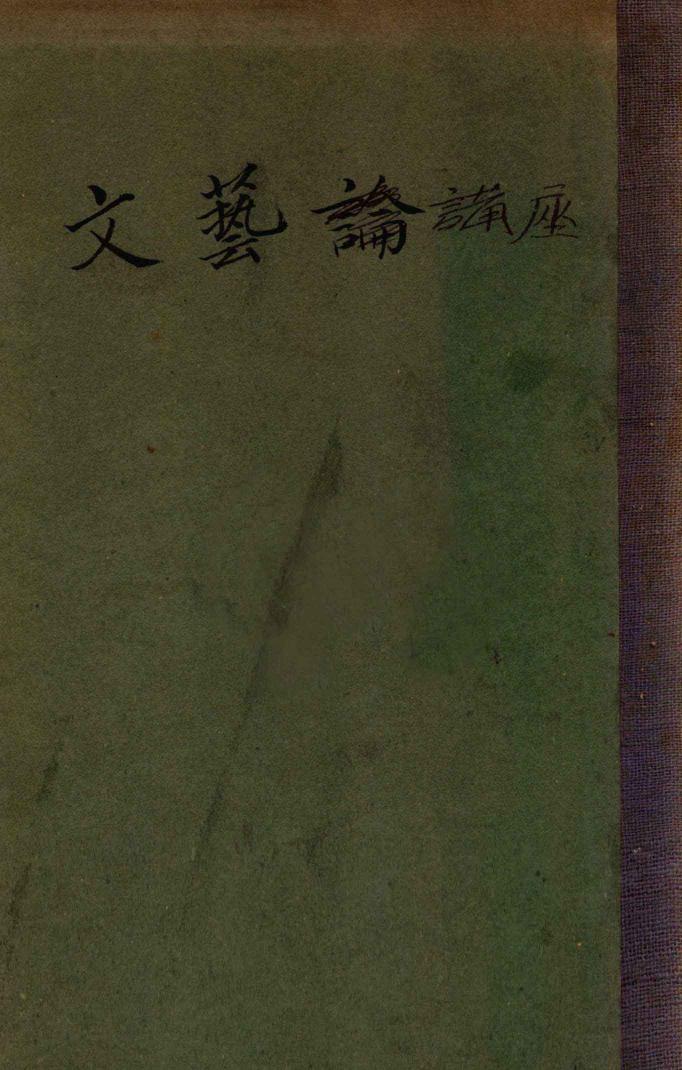 文藝論講座